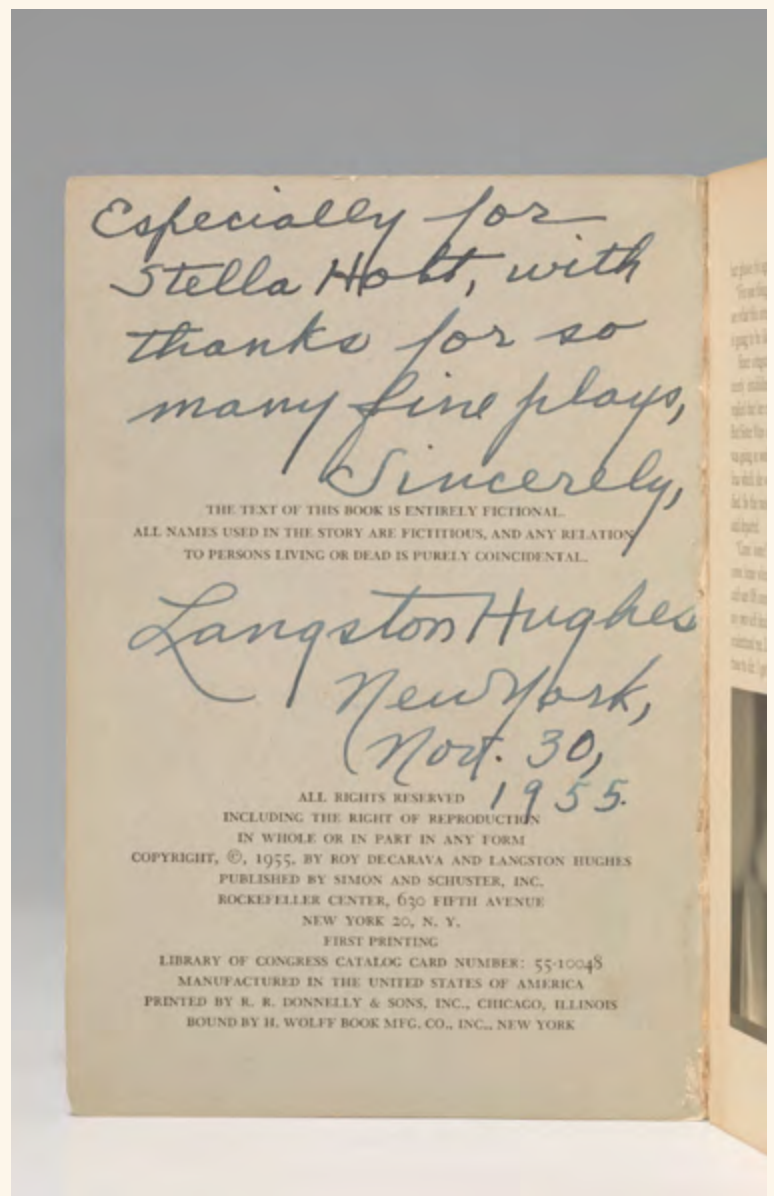 Especially for
Stella Holt, with
thanks for so
many fine plays,
Sincerely,
THE TEXT OF THIS BOOK IS ENTIRELY FICTIONAL.
ALL NAMES USED IN THE STORY ARE FICTITIOUS, AND ANY RELATION
TO PERSONS LIVING OR DEAD IS PURELY COINCIDENTAL.
Langston Hughes
New York,
Nov. 30,
1955.
ALL RIGHTS RESERVED
INCLUDING THE RIGHT OF REPRODUCTION
IN WHOLE OR IN PART IN ANY FORM
COPYRIGHT, ©, 1955, BY ROY DECARAVA AND LANGSTON HUGHES
PUBLISHED BY SIMON AND SCHUSTER, INC.
ROCKEFELLER CENTER, 630 FIFTH AVENUE
NEW YORK 20, N. Y.
FIRST PRINTING
LIBRARY OF CONGRESS CATALOG CARD NUMBER: 55-10048
MANUFACTURED IN THE UNITED STATES OF AMERICA
PRINTED BY R. R. DONNELLY & SONS, INC., CHICAGO, ILLINOIS
BOUND BY H. WOLFF BOOK MFG. CO., INC., NEW YORK